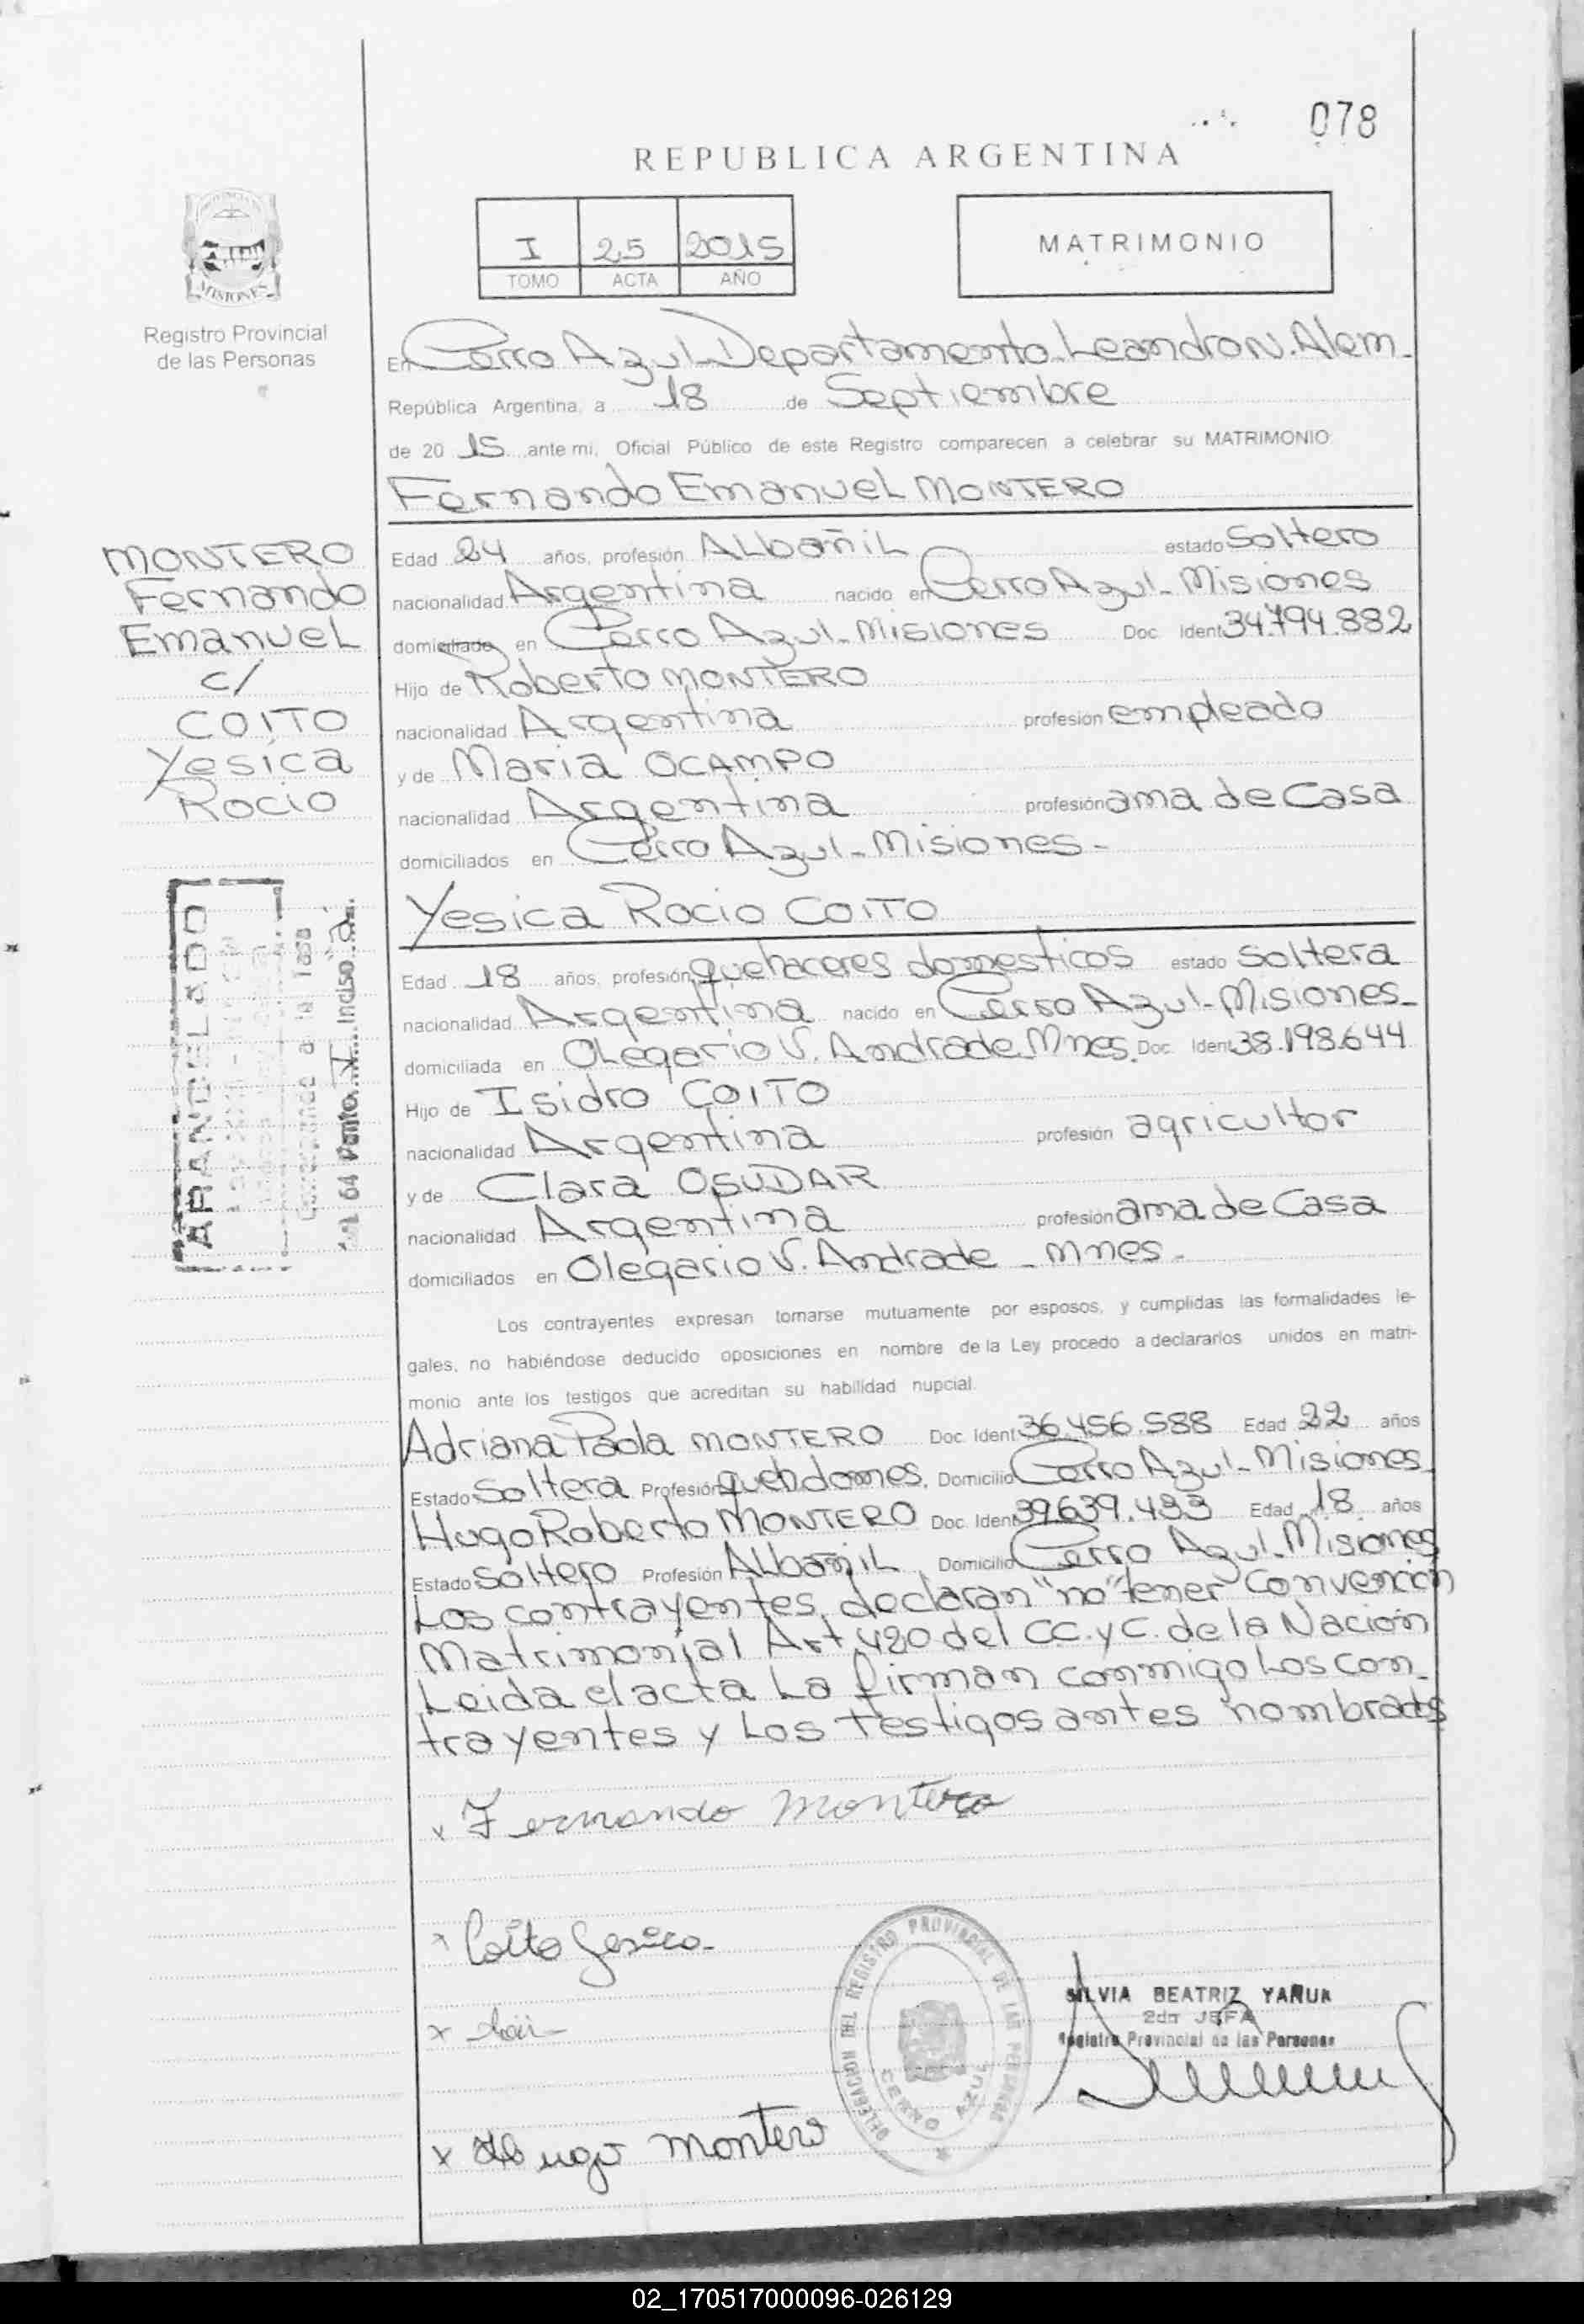 078
REPUBLICA ARGENTINA
I 25 2015
TOMO ACTA AÑO
MATRIMONIO
MISIONES
Registro Provincial
de las Personas
En Cerro Azul-Departamento Leandro N. Alem-
República Argentina, a 18 de Septiembre
de 20 15 ante mi, Oficial Público de este Registro comparecen a celebrar su MATRIMONIO:
Fernando Emanuel MONTERO
MONTERO
Fernando
Emanuel
c/
COITO
Yesica
Rocio
Edad 24 años, profesión Albañil estado Soltero
nacionalidad Argentina nacido en Cerro Azul-Misiones
domiciliado en Cerro Azul-Misiones Doc. Ident 34.794.882
Hijo de Roberto MONTERO
nacionalidad Argentina profesión empleado
y de Maria OCAMPO
nacionalidad Argentina profesión ama de Casa
domiciliados en Cerro Azul-Misiones-
Yesica Rocio COITO
Edad 18 años, profesión quehaceres domesticos estado Soltera
nacionalidad Argentina nacido en Cerro Azul-Misiones-
domiciliada en Olegario V. Andrade Mnes. Doc. Ident 38.198.644
Hijo de Isidro COITO
nacionalidad Argentina profesión agricultor
y de Clara OSUDAR
nacionalidad Argentina profesión ama de Casa
domiciliados en Olegario V. Andrade - Mnes-
ARANCELADO
a la Tasa
64 Punto I Inciso a
Los contrayentes expresan tomarse mutuamente por esposos, y cumplidas las formalidades le-
gales, no habiéndose deducido oposiciones en nombre de la Ley procedo a declararlos unidos en matri-
monio ante los testigos que acreditan su habilidad nupcial.
Adriana Paola MONTERO Doc. Ident 36.456.588 Edad 22 años
Estado Soltera Profesión queh.domes. Domicilio Cerro Azul-Misiones-
Hugo Roberto MONTERO Doc. Ident 39.639.433 Edad 18 años
Estado Soltero Profesión Albañil Domicilio Cerro Azul-Misiones
Los contrayentes, declaran "no" tener Convención
Matrimonial Art. 420 del CC.yC. de la Nación
Leida el acta La firman conmigo Los con-
trayentes y Los testigos antes nombrados
x Fernando Montero
x Coito Yesica-
x
x Hugo Montero
DELEGACION DEL REGISTRO PROVINCIAL DE LAS PERSONAS
CERRO AZUL
SILVIA BEATRIZ YARUK
2da JEFA
Registro Provincial de las Personas
02_170517000096-026129